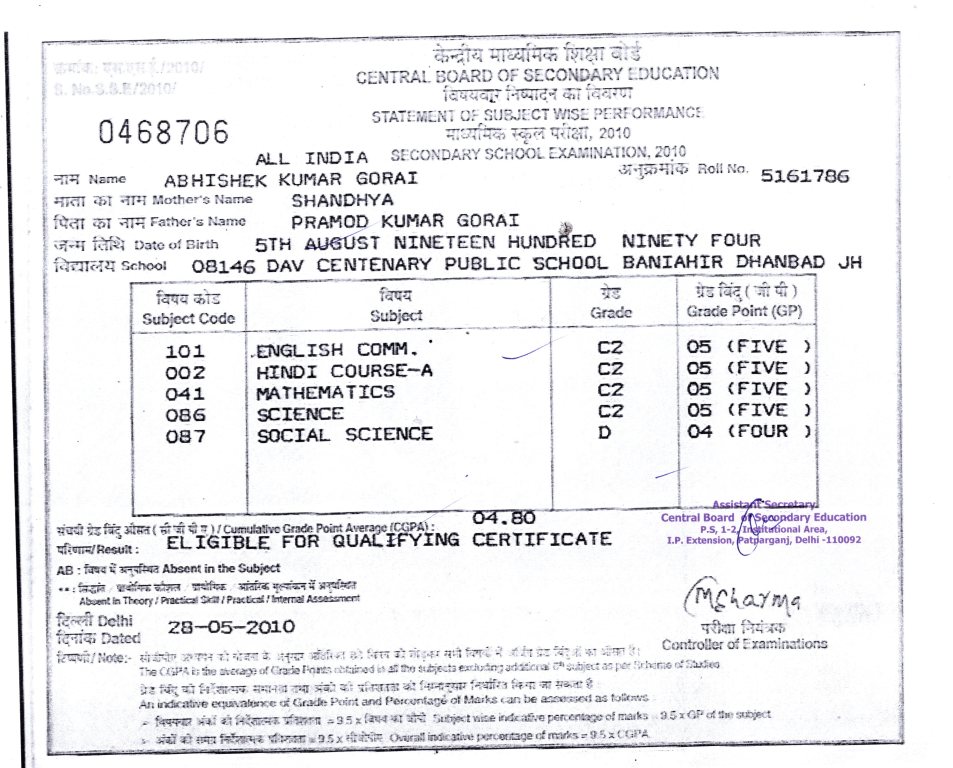 केन्द्रीय माध्यमिक शिक्षा बोर्ड
क्रमांक: एस.एस.ई./2010/
CENTRAL BOARD OF SECONDARY EDUCATION
S. No.S.S.E/2010/
विषयवार निष्पादन का विवरण
STATEMENT OF SUBJECT WISE PERFORMANCE
0468706
माध्यमिक स्कूल परीक्षा, 2010
ALL INDIA SECONDARY SCHOOL EXAMINATION, 2010
नाम Name ABHISHEK KUMAR GORAI अनुक्रमांक Roll No. 5161786
माता का नाम Mother's Name SHANDHYA
पिता का नाम Father's Name PRAMOD KUMAR GORAI
जन्म तिथि Date of Birth 5TH AUGUST NINETEEN HUNDRED NINETY FOUR
विद्यालय School 08146 DAV CENTENARY PUBLIC SCHOOL BANIAHIR DHANBAD JH
विषय कोड विषय ग्रेड ग्रेड बिंदु ( जी पी )
Subject Code Subject Grade Grade Point (GP)
101 ENGLISH COMM. C2 05 (FIVE )
002 HINDI COURSE-A C2 05 (FIVE )
041 MATHEMATICS C2 05 (FIVE )
086 SCIENCE C2 05 (FIVE )
087 SOCIAL SCIENCE D 04 (FOUR )
Assistant Secretary
Central Board of Secondary Education
P.S, 1-2, Institutional Area,
I.P. Extension, Patparganj, Delhi -110092
संचयी ग्रेड बिंदु औसत ( सी जी पी ए ) / Cumulative Grade Point Average (CGPA) : 04.80
परिणाम/ Result : ELIGIBLE FOR QUALIFYING CERTIFICATE
AB : विषय में अनुपस्थित Absent in the Subject
** : सिद्धांत / प्रायोगिक कौशल / प्रायोगिक / आंतरिक मूल्यांकन में अनुपस्थित
Absent in Theory / Practical Skill / Practical / Internal Assessment
MSharma
दिल्ली Delhi
दिनांक Dated 28-05-2010
परीक्षा नियंत्रक
Controller of Examinations
टिप्पणी/ Note:-
The CGPA is the average of Grade Points obtained in all the subjects excluding additional 6th subject as per Scheme of Studies
ग्रेड बिंदु की निर्देशात्मक समानता तथा अंकों की प्रतिशतता को निम्नानुसार निर्धारित किया जा सकता है :
An indicative equivalence of Grade Point and Percentage of Marks can be assessed as follows
विषयवार अंकों की निर्देशात्मक प्रतिशतता = 9.5 x विषय का जीपी Subject wise indicative percentage of marks = 9.5 x GP of the subject
अंकों की समग्र निर्देशात्मक प्रतिशतता = 9.5 x सीजीपीए Overall indicative percentage of marks = 9.5 x CGPA